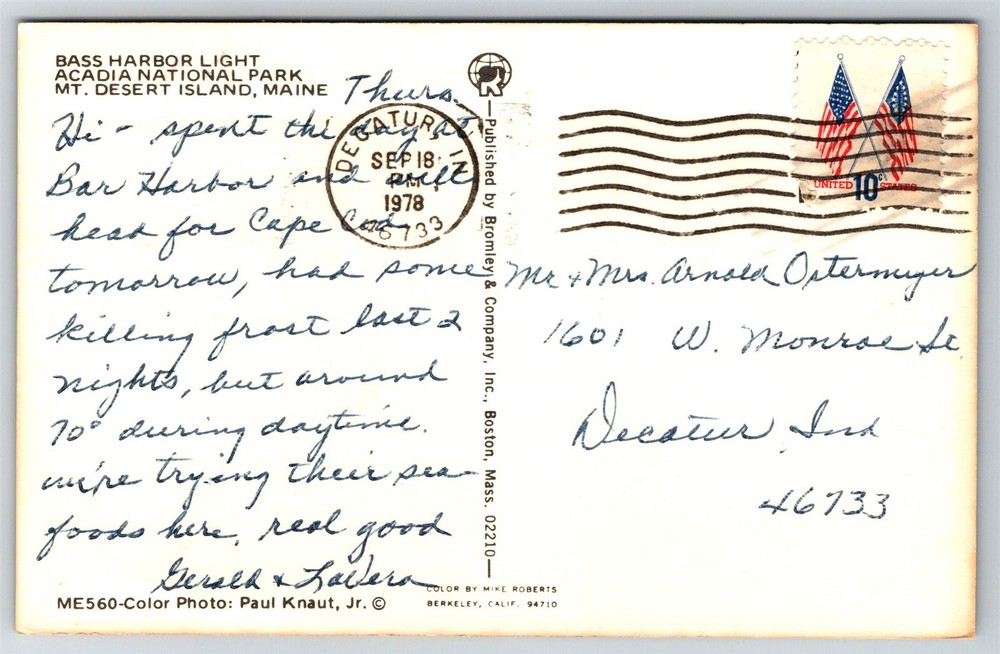 BASS HARBOR LIGHT
ACADIA NATIONAL PARK
MT. DESERT ISLAND, MAINE
Thurs.
Hi - spent the day at
Bar Harbor and will
head for Cape Cod
tomorrow, had some
killing frost last 2
nights, but around
70° during daytime.
we're trying their sea
foods here, real good
Gerald & LaVera
ME560-Color Photo: Paul Knaut, Jr. ©
Published by Bromley & Company, Inc., Boston, Mass. 02210
COLOR BY MIKE ROBERTS
BERKELEY, CALIF. 94710
DECATUR, I
SEP 18
PM
1978
46733
UNITED 10c STATES
Mr. & Mrs. Arnold Ostermeyer
1601 W. Monroe St.
Decatur, Ind
46733